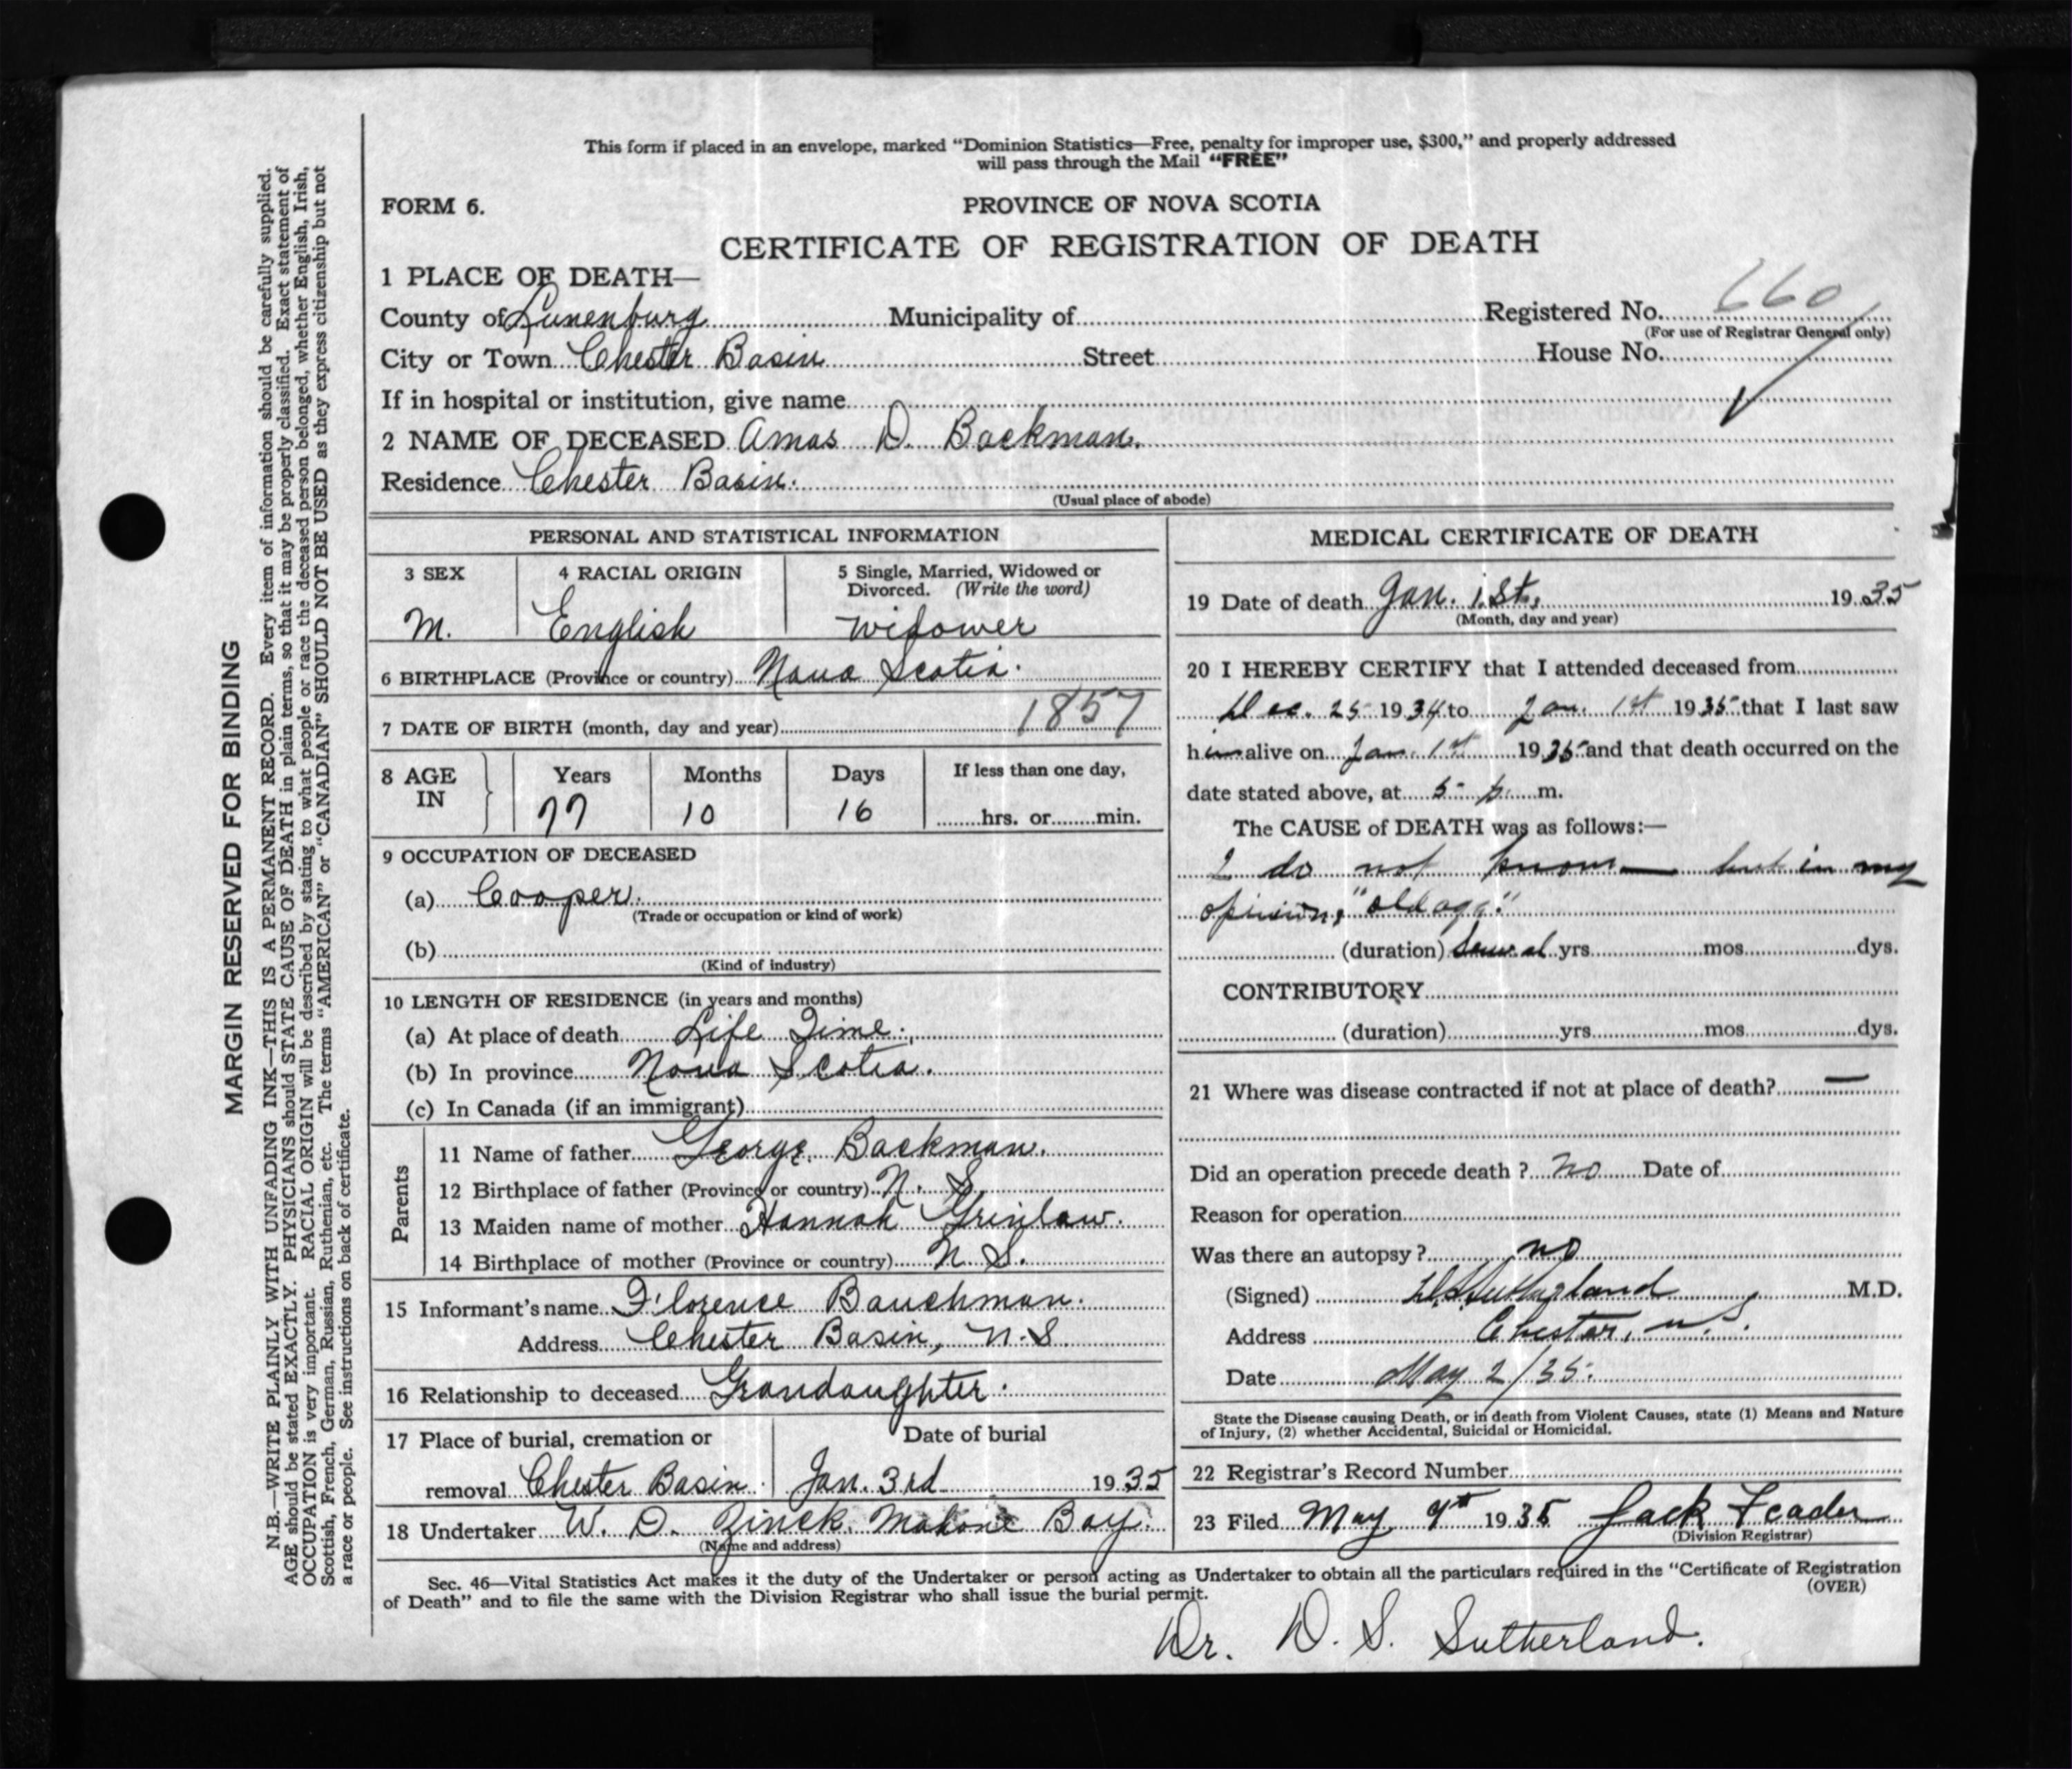 This form if placed in an envelope, marked "Dominion Statistics—Free, penalty for improper use, $300," and properly addressed
will pass through the Mail "FREE"
FORM 6.
PROVINCE OF NOVA SCOTIA
CERTIFICATE OF REGISTRATION OF DEATH
1 PLACE OF DEATH—
County of Lunenburg Municipality of Registered No. 660
(For use of Registrar General only)
City or Town Chester Basin Street House No.
If in hospital or institution, give name
2 NAME OF DECEASED Amos D. Backman.
Residence Chester Basin.
(Usual place of abode)
PERSONAL AND STATISTICAL INFORMATION
3 SEX 4 RACIAL ORIGIN 5 Single, Married, Widowed or
Divorced. (Write the word)
M. English Widower
6 BIRTHPLACE (Province or country) Nova Scotia.
7 DATE OF BIRTH (month, day and year) 1857
8 AGE IN Years Months Days If less than one day,
77 10 16 hrs. or min.
9 OCCUPATION OF DECEASED
(a) Cooper.
(Trade or occupation or kind of work)
(b)
(Kind of industry)
10 LENGTH OF RESIDENCE (in years and months)
(a) At place of death Life Time.
(b) In province Nova Scotia.
(c) In Canada (if an immigrant)
Parents
11 Name of father George Backman.
12 Birthplace of father (Province or country) N. S.
13 Maiden name of mother Hannah Grinlaw.
14 Birthplace of mother (Province or country) N. S.
15 Informant's name Florence Bauchman.
Address Chester Basin, N.S.
16 Relationship to deceased Grandaughter.
17 Place of burial, cremation or Date of burial
removal Chester Basin. Jan. 3rd 1935
18 Undertaker W. D. Zinck, Mahone Bay.
(Name and address)
MEDICAL CERTIFICATE OF DEATH
19 Date of death Jan. 1.St, 1935
(Month, day and year)
20 I HEREBY CERTIFY that I attended deceased from
Dec. 25 1934 to Jan. 1st 1935 that I last saw
him alive on Jan. 1st 1935 and that death occurred on the
date stated above, at 5- p. m.
The CAUSE of DEATH was as follows:—
I do not know — but in my
opinion, "old age."
(duration) Several yrs. mos. dys.
CONTRIBUTORY
(duration) yrs. mos. dys.
21 Where was disease contracted if not at place of death? —
Did an operation precede death? No Date of
Reason for operation
Was there an autopsy? no
(Signed) D.S. Sutherland M.D.
Address Chester, N.S.
Date May 2/35.
State the Disease causing Death, or in death from Violent Causes, state (1) Means and Nature
of Injury, (2) whether Accidental, Suicidal or Homicidal.
22 Registrar's Record Number
23 Filed May 9th 1935 Jack Feader
(Division Registrar)
Sec. 46—Vital Statistics Act makes it the duty of the Undertaker or person acting as Undertaker to obtain all the particulars required in the "Certificate of Registration
of Death" and to file the same with the Division Registrar who shall issue the burial permit.
(OVER)
Dr. D. S. Sutherland.
MARGIN RESERVED FOR BINDING
N.B.—WRITE PLAINLY WITH UNFADING INK—THIS IS A PERMANENT RECORD. Every item of information should be carefully supplied.
AGE should be stated EXACTLY. PHYSICIANS should STATE CAUSE OF DEATH in plain terms, so that it may be properly classified. Exact statement of
OCCUPATION is very important. RACIAL ORIGIN will be described by stating to what people or race the deceased person belonged, whether English, Irish,
Scottish, French, German, Russian, Ruthenian, etc. The terms "AMERICAN" or "CANADIAN" SHOULD NOT BE USED as they express citizenship but not
a race or people. See instructions on back of certificate.